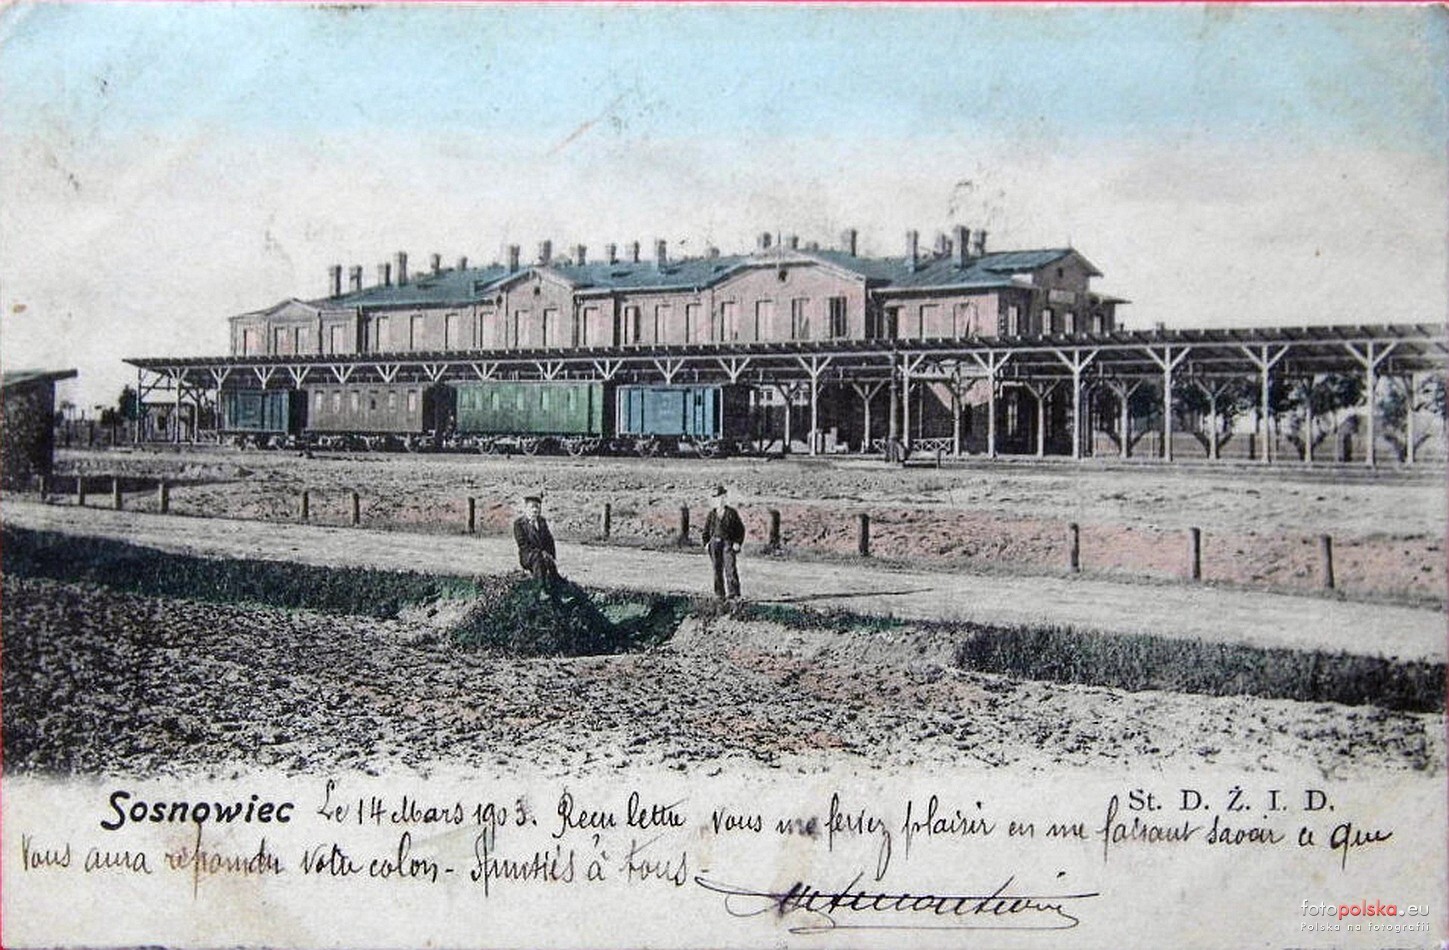 St. D. Ż. I. D.
Sosnowiec Le 14 Mars 1903. Recu lettre vous me feriez plaisir en me faisant savoir ce que
Vous aura répondu Votre colon - Amitiés à tous -
fotopolska.eu
Polska na fotografii